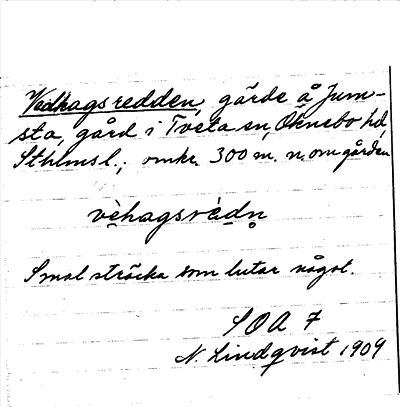 Vedhagsredden, gärde å Jum-
sta, gård i Tveta sn, Öknebo hd,
Sthlms l.; omkr. 300 m. n. om gården
vèhagsrèdn̥
Smal sträcka som lutar något.
SOA 7
N. Lindqvist 1909